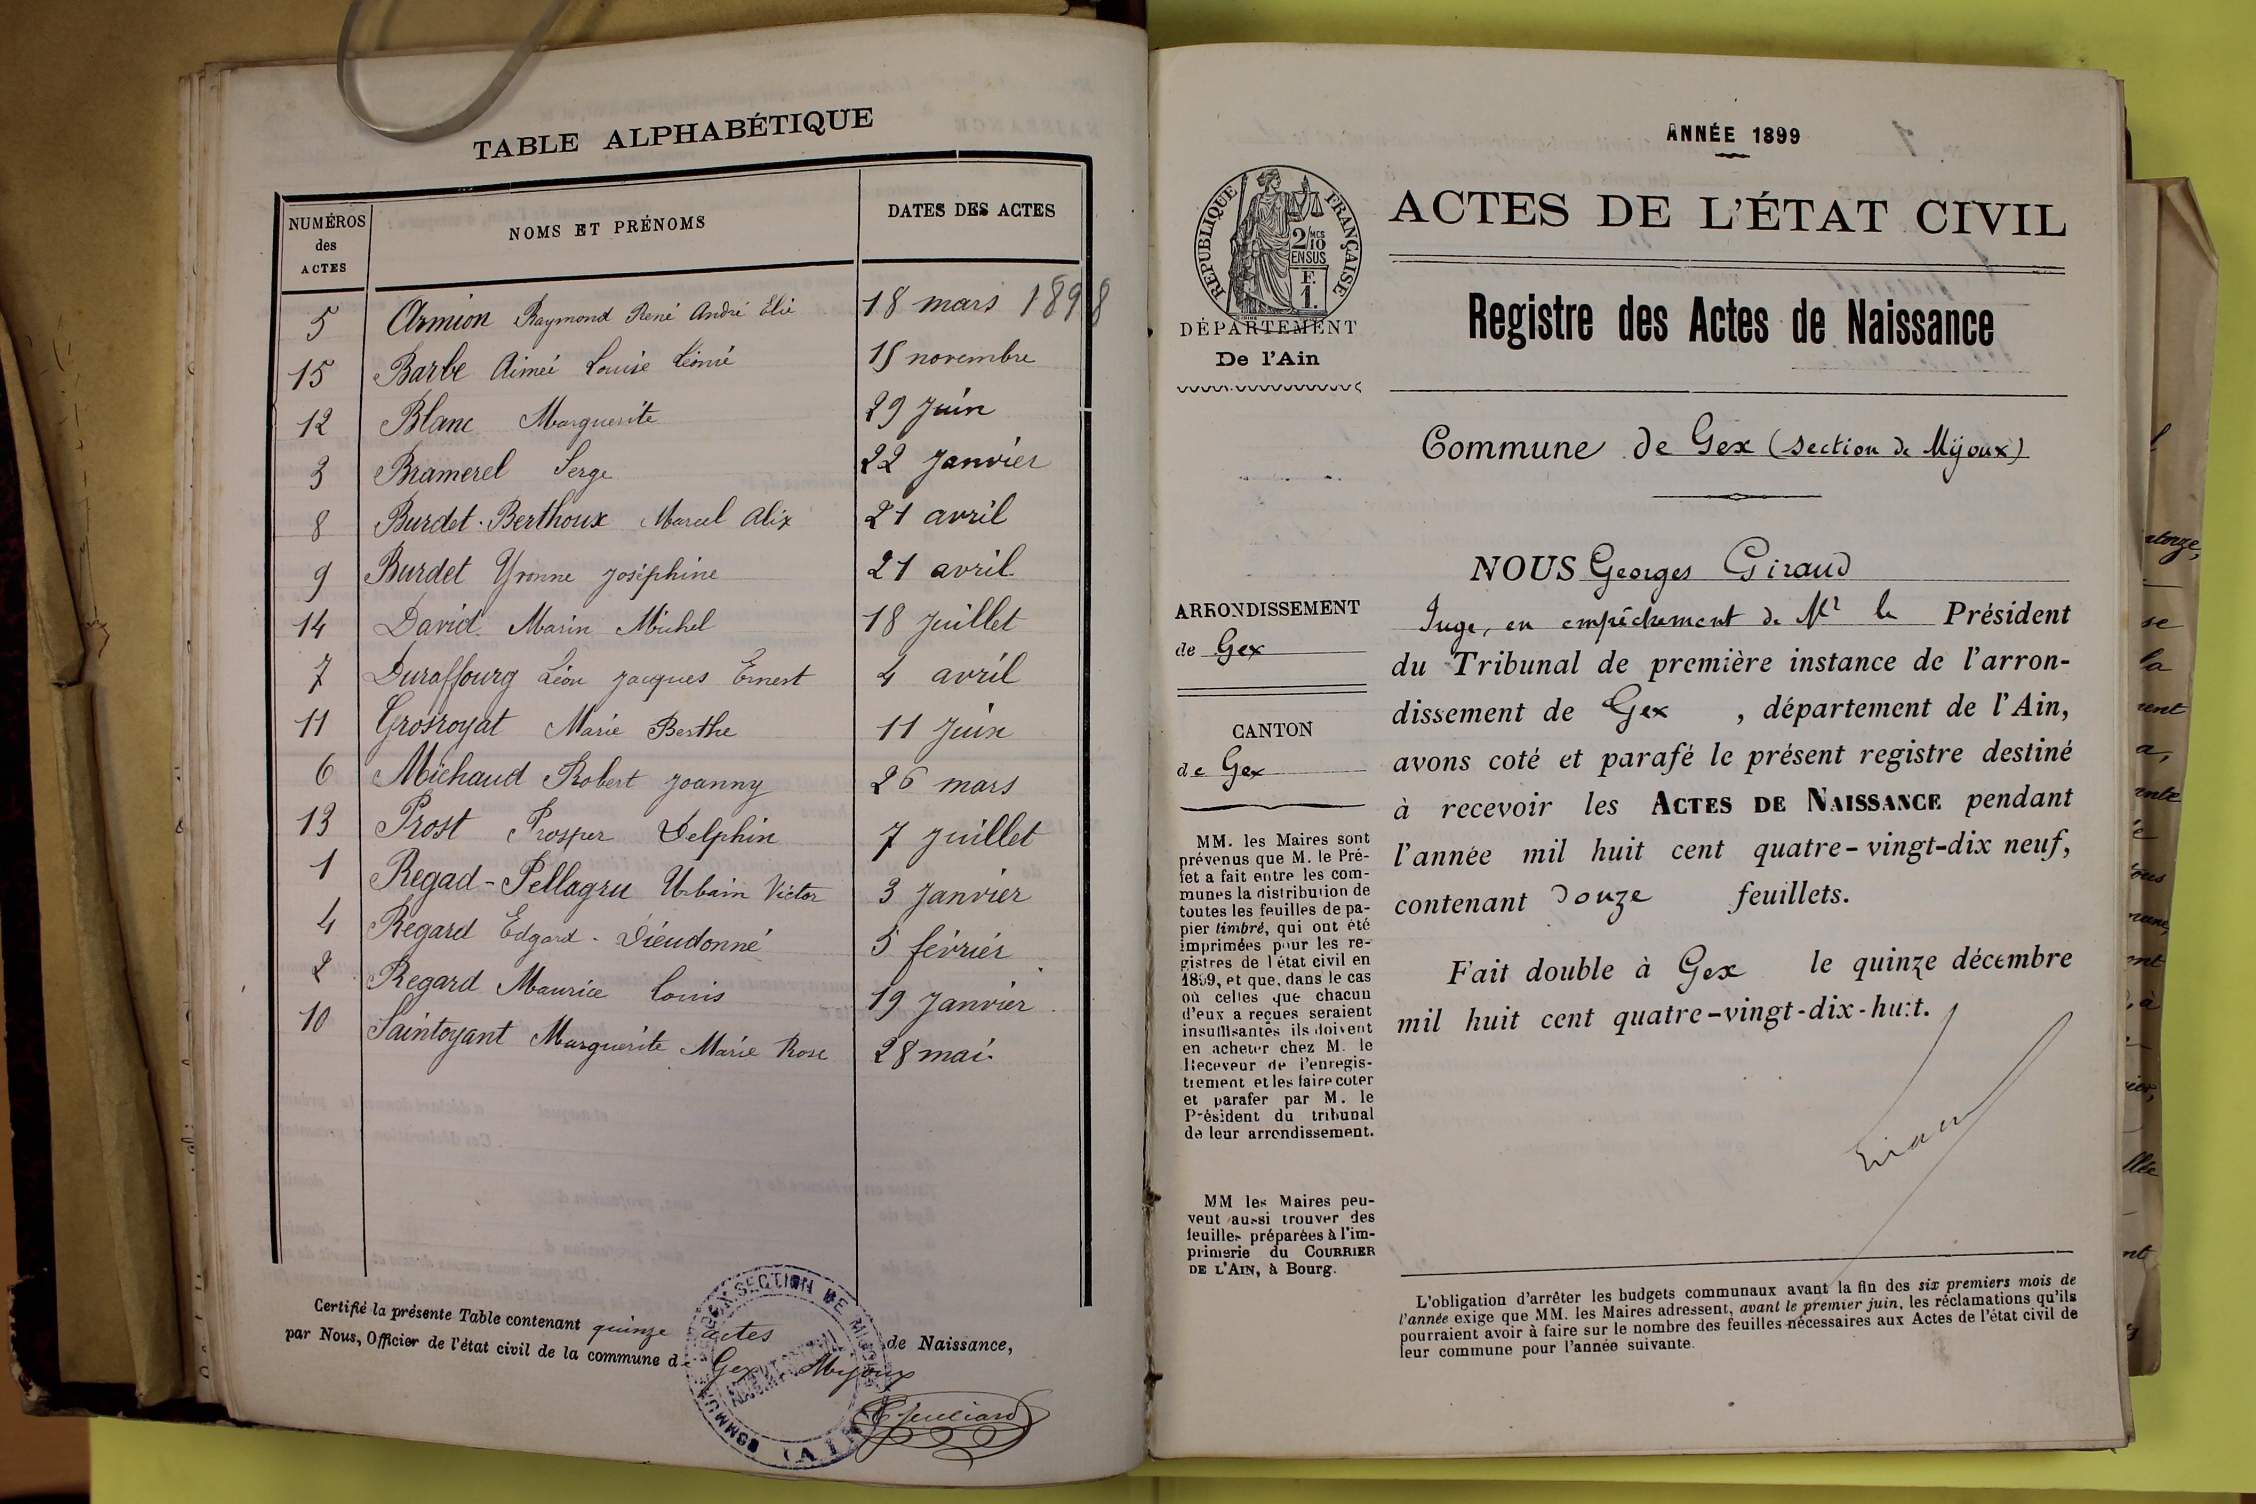 TABLE ALPHABÉTIQUE
NUMÉROS des ACTES NOMS ET PRÉNOMS DATES DES ACTES
5 Armion Raymond René André Elie 18 mars 1898
15 Barbe Aimée Louise Léonie 15 novembre
12 Blanc Marguerite 29 juin
3 Bramerel Serge 22 janvier
8 Burdet-Berthoux Marcel Alix 21 avril
9 Burdet Yvonne Joséphine 21 avril
14 David Marin Michel 18 juillet
7 Duraffourg Léon Jacques Ernest 4 avril
11 Grosroyat Marie Berthe 11 juin
6 Michaud Robert Joanny 26 mars
13 Prost Prosper Delphin 7 juillet
1 Regad-Pellagru Urbain Victor 3 janvier
4 Regard Edgard-Dieudonné 5 février
2 Regard Maurice Louis 19 janvier
10 Saintoyant Marguerite Marie Rose 28 mai
Certifié la présente Table contenant quinze actes de Naissance,
par Nous, Officier de l'état civil de la commune de Gex Mijoux
ANNÉE 1899
RÉPUBLIQUE FRANÇAISE
2/10 EN SUS
F. 1.
DÉPARTEMENT
De l'Ain
ACTES DE L'ÉTAT CIVIL
Registre des Actes de Naissance
Commune de Gex (section de Mijoux)
ARRONDISSEMENT
de Gex
CANTON
de Gex
MM. les Maires sont
prévenus que M. le Pré-
fet a fait entre les com-
munes la distribution de
toutes les feuilles de pa-
pier timbré, qui ont été
imprimées pour les re-
gistres de l'état civil en
1899, et que, dans le cas
où celles que chacun
d'eux a reçues seraient
insuffisantes ils doivent
en acheter chez M. le
Receveur de l'enregis-
trement et les faire coter
et parafer par M. le
Président du tribunal
de leur arrondissement.
MM les Maires peu-
vent aussi trouver des
feuilles préparées à l'im-
primerie du COURRIER
DE L'AIN, à Bourg.
NOUS Georges Giraud
Juge, en empêchement de Mr le Président
du Tribunal de première instance de l'arron-
dissement de Gex , département de l'Ain,
avons coté et parafé le présent registre destiné
à recevoir les ACTES DE NAISSANCE pendant
l'année mil huit cent quatre-vingt-dix neuf,
contenant douze feuillets.
Fait double à Gex le quinze décembre
mil huit cent quatre-vingt-dix-huit.
Giraud
L'obligation d'arrêter les budgets communaux avant la fin des six premiers mois de
l'année exige que MM. les Maires adressent, avant le premier juin, les réclamations qu'ils
pourraient avoir à faire sur le nombre des feuilles nécessaires aux Actes de l'état civil de
leur commune pour l'année suivante.